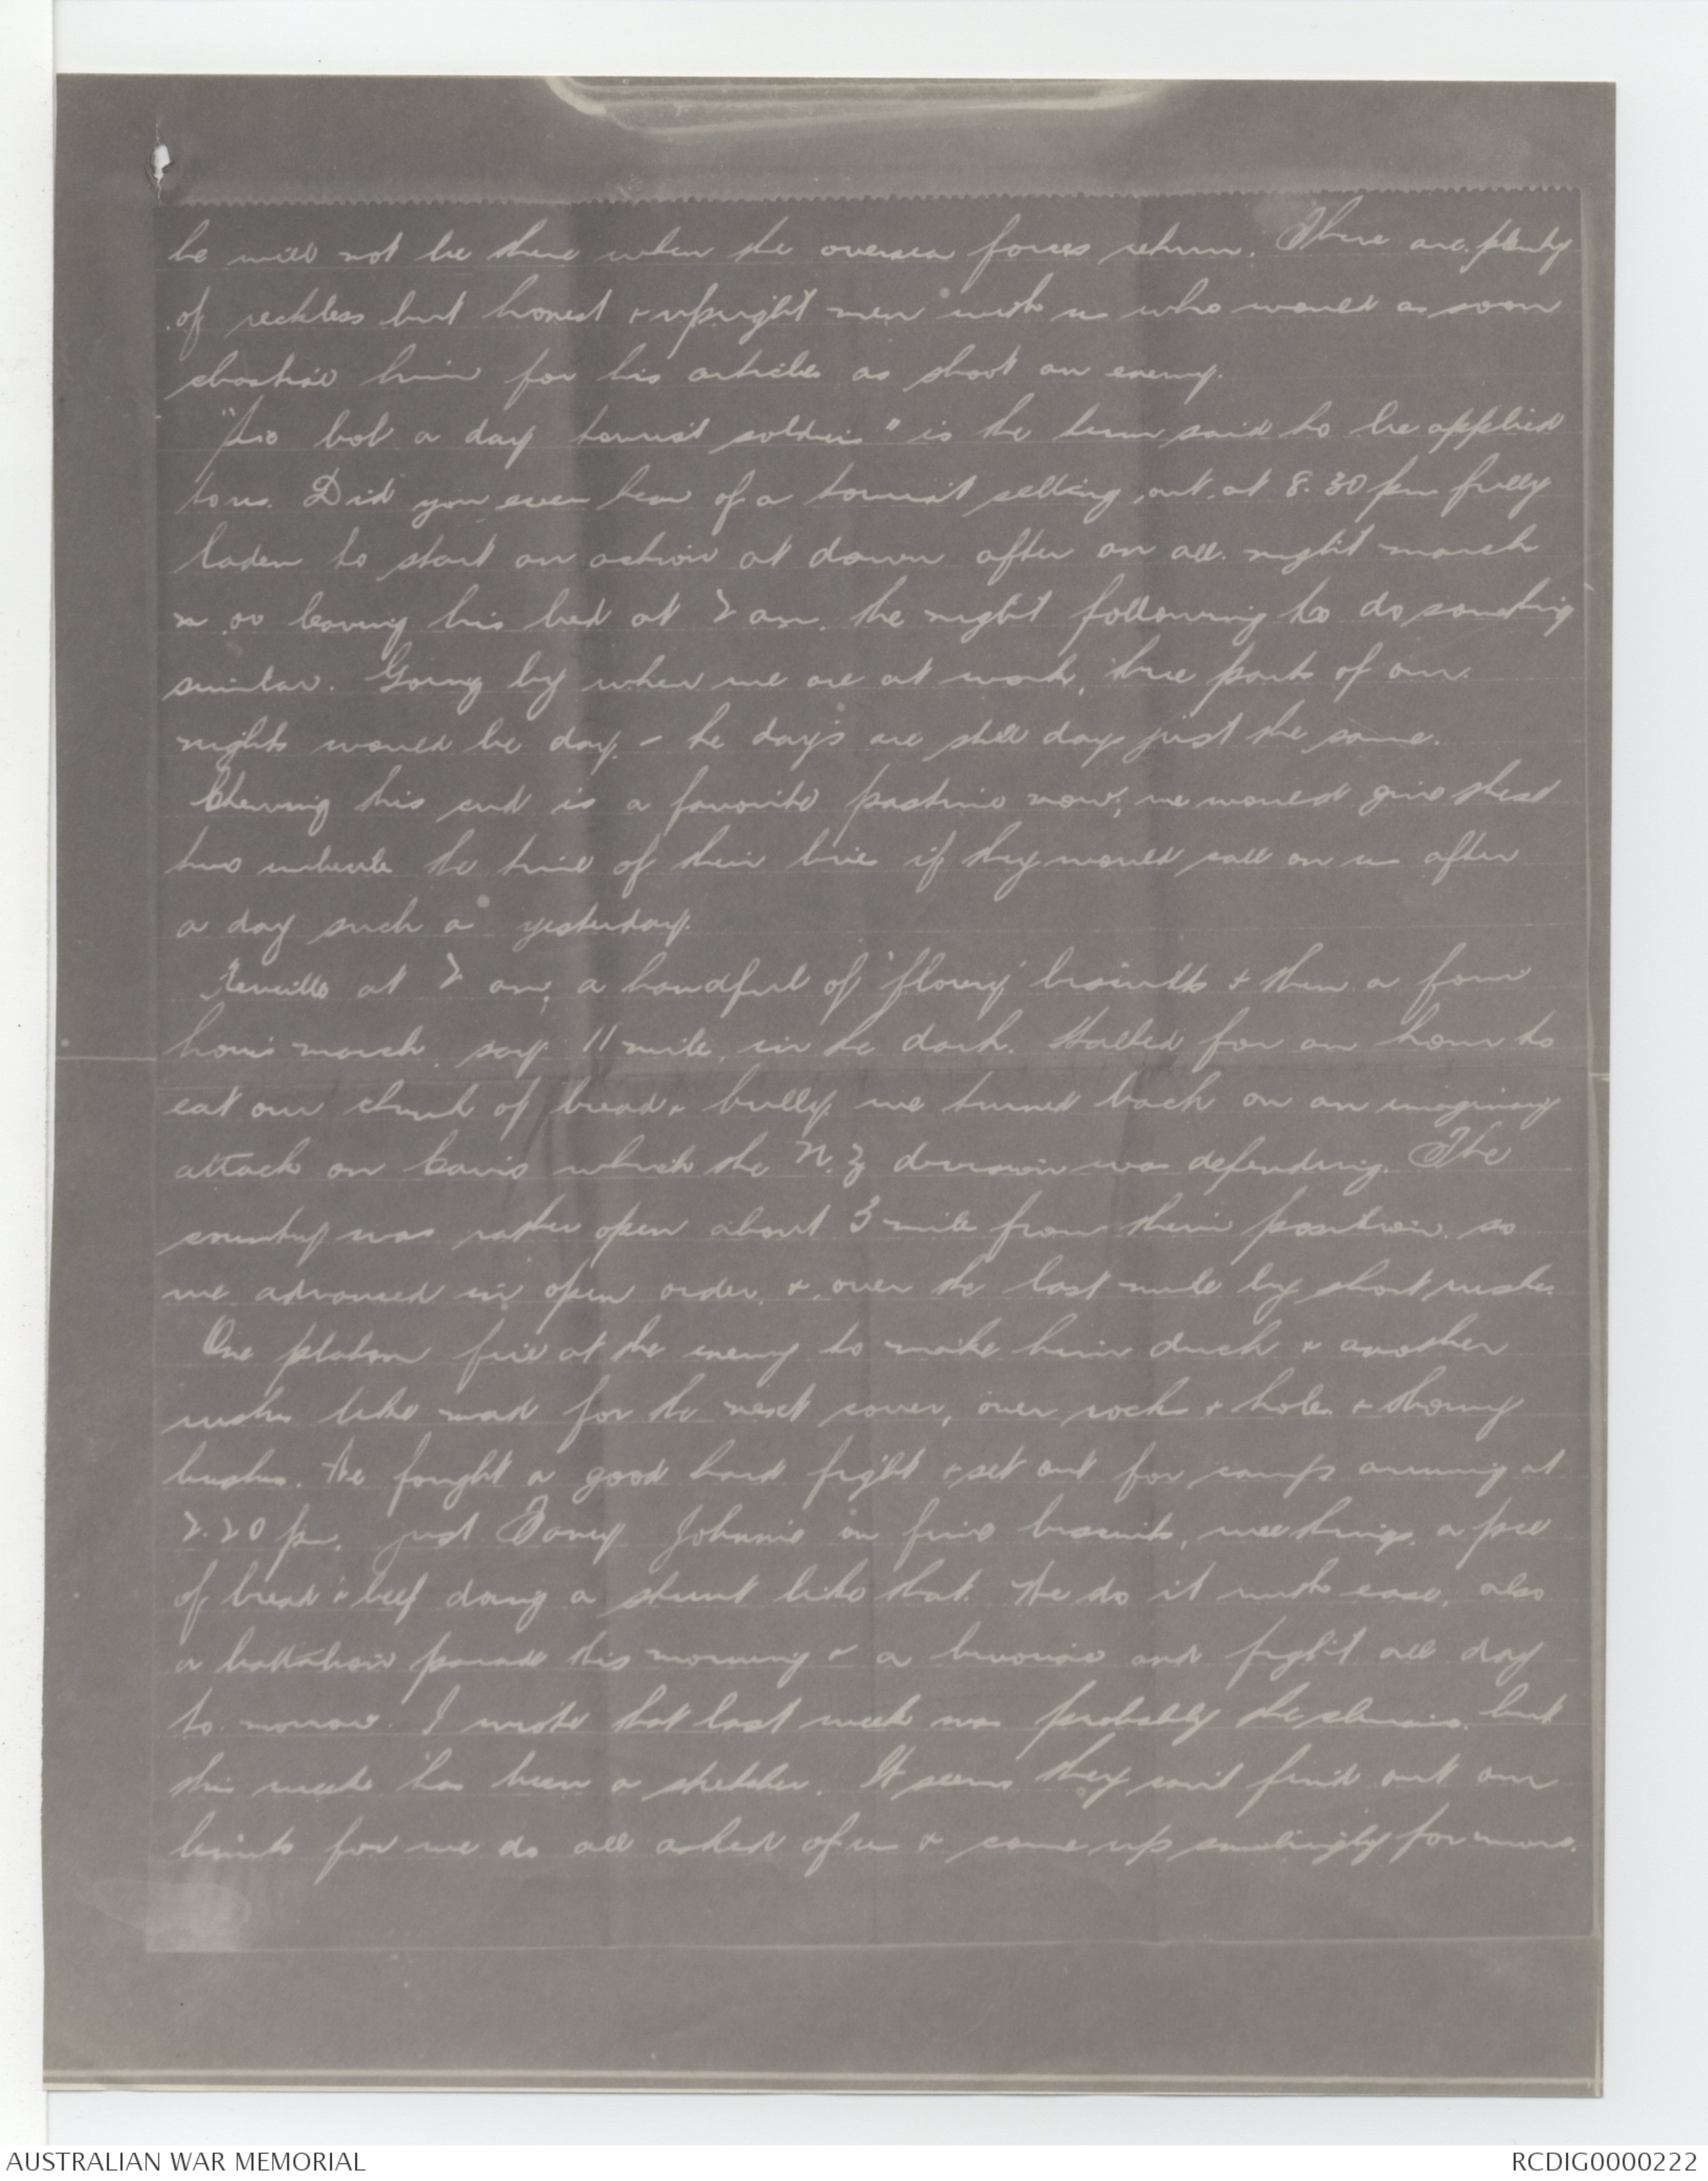 he will not be there when the oversea forces return. There are plenty
of reckless but honest & upright men with us who would as soon
chastise him for his articles as shoot an enemy.
bob a day tourist soldiers" is the term said to be applied
to us. Did you ever hear of a tourist setting out at 8.30 pm fully
laden to start an action at dawn after an all night march
or leaving his bed at 2 am the night following to do something
similar. Going by when we are at work, true part of our
nights would be day, - the days are still days just the same.
Chewing this cud is a favorite pastime now; we would give these
two the time of their lives if they would call on us after
a day such as yesterday.
Reveille at 2 am, a handful of 'flowery' biscuits & then a four
hours march, say 11 mile, in the dark. Halted for an hour to
eat our chunk of bread & bully, we turned back on an imaginary
attack on Cairo which the N.Z division was defending. The
country was rather open about 3 mile from their position, so
we advanced in open order, & over the last mile by short rushes.
One platoon fire at the enemy to make him duck & another
rushes like mad for the next cover, over rocks & holes & thorny
bushes. We fought a good hard fight & set out for camp arriving at
2.20 pm. just Fancy Johnnie on five biscuits, a piece
of bread & beef doing a stunt like that. We do it with ease, also
a battalion parade this morning & a bivouac and fight all day
to morrow. I wrote that last week was probably the climax, but
this week has been a stretcher. It seems they can't find out our
limits for we do all asked of us & come up smilingly for more.
AUSTRALIAN WAR MEMORIAL
RCDIG0000222